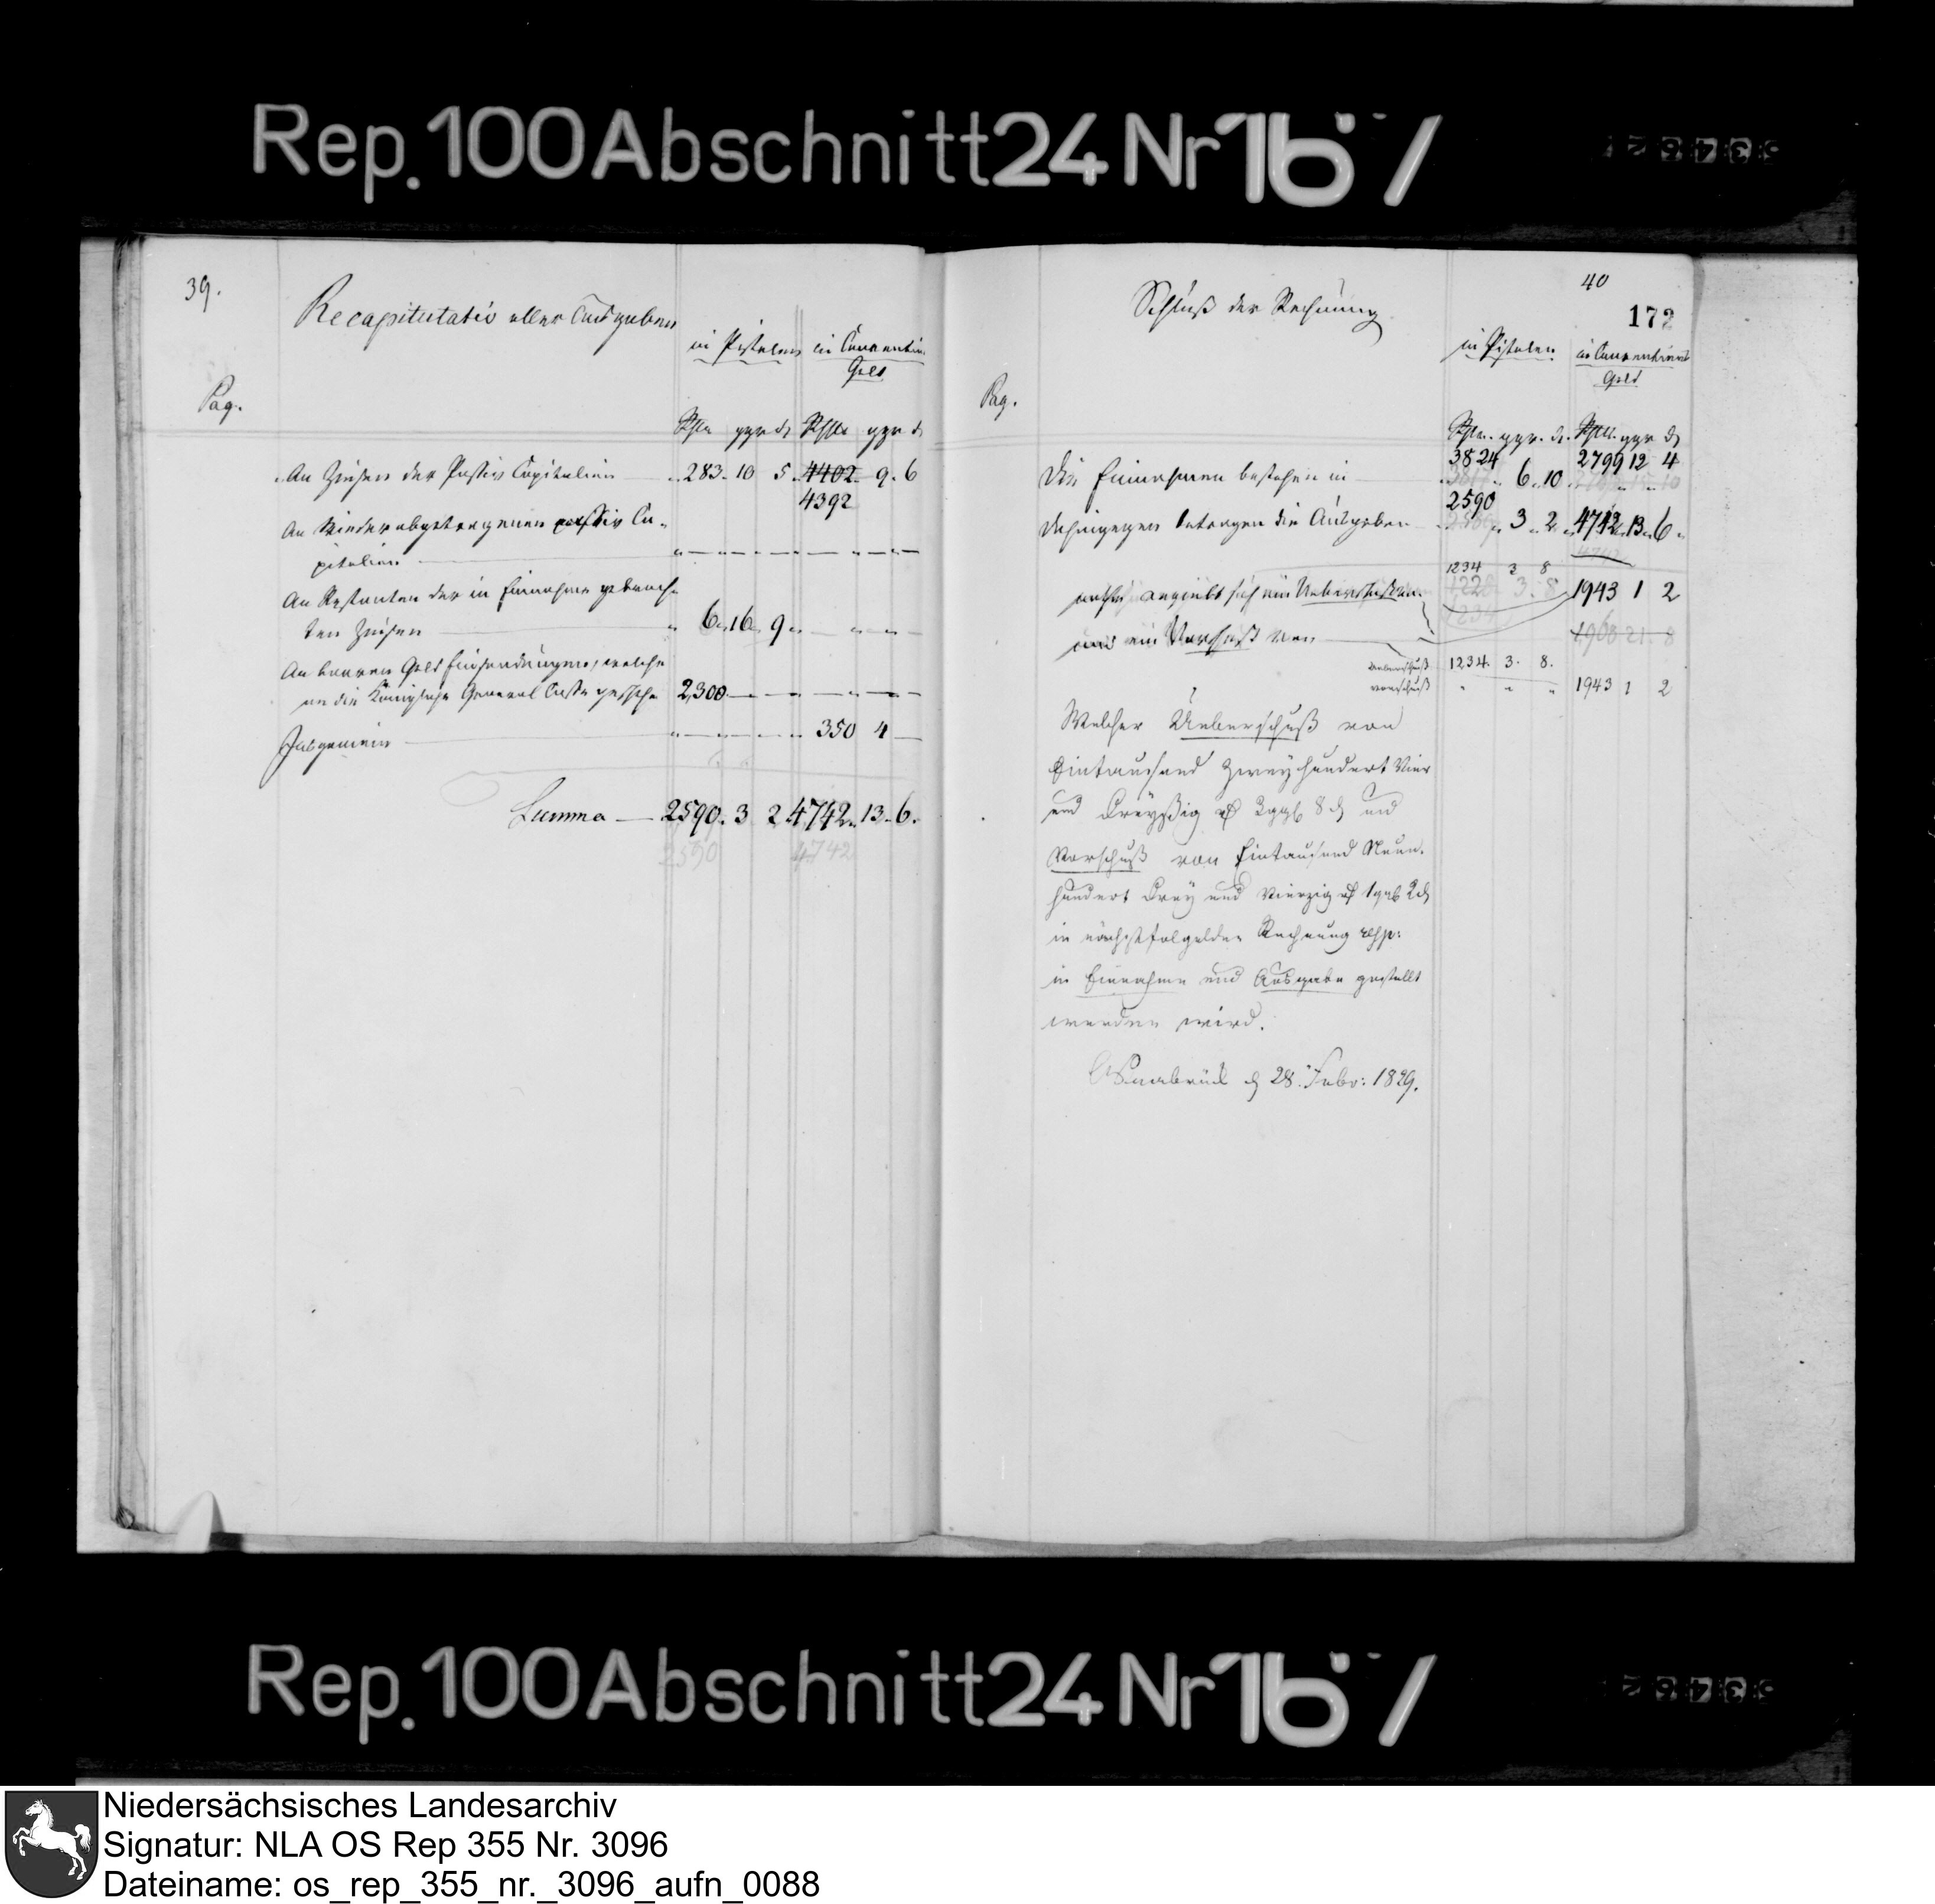 Rep. 100 Abschnitt 24 Nr 16 /
39.
Recapitulatio aller Ausgaben
in Pistolen in Conventions
Geld
Pag.
Rthlr ggr d Rthlr ggr d
An Zinsen der Passiv Capitalien 283. 10 5. 4402. 9. 6
4392
An Wiederabgetragenen passiv Ca-
pitalien
An Restanten der in Einnahme gebrach-
ten Zinsen 6. 16. 9.
An baaren Geld Einsendungen, welche
an die Königliche General Casse gesche 2300
Insgemein 350 4
Summa 2590. 3 2 4742. 13. 6.
2590 4742
40
172
Schluß der Rechnung
in Pistolen in Conventions
Geld
Pag.
Rthlr. ggr. d. Rthlr. ggr d
3824 2799 12 4
Die Einnahmen bestehen in 6. 10
2590
Dahingegen betragen die Ausgaben 3. 2. 4742. 13. 6.
1234 3 8
ergiebt sich ein Ueberschuß von 1228 3. 8 1943 1 2
1234
und ein Vorschuß von 1968 21. 8
Ueberschuß 1234. 3. 8.
Vorschuß 1943 1 2
Welcher Ueberschuß von
Eintausend Zweyhundert Vier
und Dreyßig rf 3 ggl 8 d und
Vorschuß von Eintausend Neun-
hundert Drey und Vierzig rf 1 ggl 2 d
in nächstfolgelder Rechnung resp:
in Einnahme und Ausgabe gestellt
werden wird.
Osnabrück d 28. Febr: 1829.
Rep. 100 Abschnitt 24 Nr 16 /
Niedersächsisches Landesarchiv
Signatur: NLA OS Rep 355 Nr. 3096
Dateiname: os_rep_355_nr._3096_aufn_0088